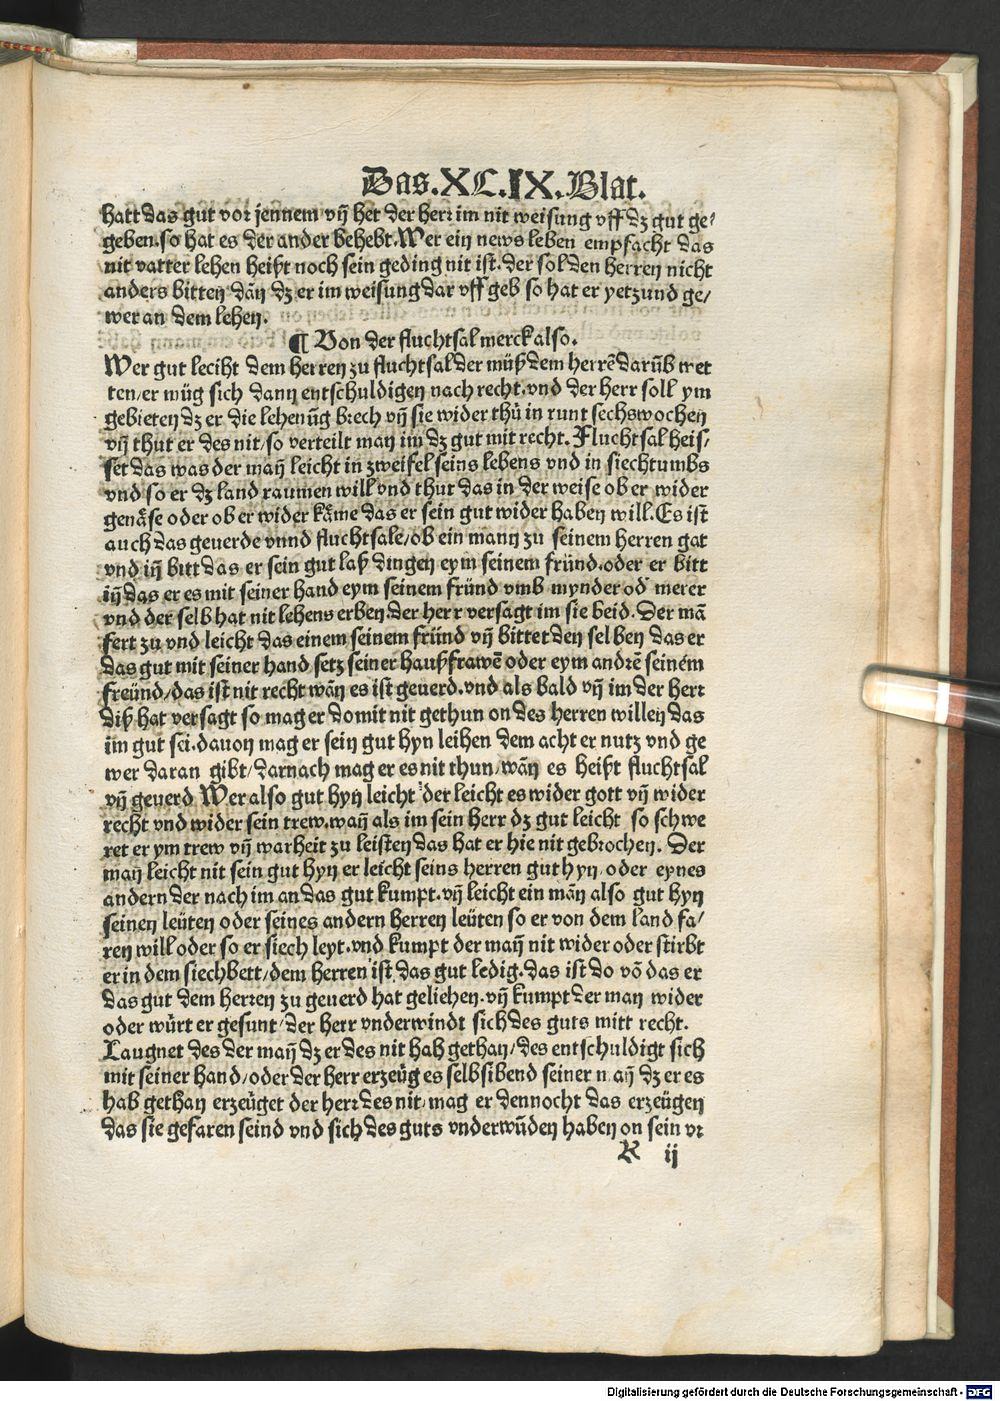 Das.XL.IX.Blat.
hatt das gut vor jennem vn̄ het der herr im nit weisung vff dz gut ge⸗
geben. so hat es der ander behebt. Wer ein news leben empfacht das
nit vatter lehen heißt noch sein geding nit ist. der sol den herren nicht
anders bitten dān dz er im weisung dar vff geb so hat er yetzund ge/
wer an dem lehen.
¶ Von der fluchtsal merck also.
Wer gut leciht dem herren zu fluchtsal der müß dem herrē darūb wet
ten/er müg sich dann entschuldigen nach recht. vnd der herr soll ym
gebieten dz er die lehenūg brech vn̄ sie wider thů in runt sechswochen
vn̄ thut er des nit/so verteilt man im dz gut mit recht. Fluchtsal heis/
set das was der man̄ leicht in zweifel seins lebens vnd in siechtumbs
vnd so er dz land raumen will vnd thut das in der weise ob er wider
genäse oder ob er wider käme das er sein gut wider haben will. Es ist
auch das geuerde vnnd fluchtsale/ob ein mann zu seinem herren gat
vnd in̄ bitt das er sein gut laß dingen eym seinem fründ. oder er bitt
in̄ das er es mit seiner hand eym seinem fründ vmb mynder od̓ merer
vnd der selb hat nit lehens erben. der herr versagt im sie beid. Der mā
fert zu vnd leicht das einem seinem fründ vn̄ bittet den selben das er
das gut mit seiner hand setz seiner haußfrawē oder eym andrē seinem
freünd/das ist nit recht wān es ist geuerd. vnd als bald vn̄ im der herr
diß hat versagt so mag er domit nit gethun on des herren willen das
im gut sei. dauon mag er sein gut hyn leihen dem acht er nutz vnd ge
wer daran gibt/darnach mag er es nit thun/wān es heißt fluchtsal
vn̄ geuerd Wer also gut hyn leicht der leicht es wider gott vn̄ wider
recht vnd wider sein trew. wan̄ als im sein herr dz gut leicht so schwe
ret er ym trew vn̄ warheit zu leisten das hat er hie nit gebrochen. Der
man leicht nit sein gut hyn er leicht seins herren gut hyn oder eynes
andern der nach im an das gut kumpt. vn̄ leicht ein mān also gut hyn
seinen leüten oder seines andern herren leüten so er von dem land fa/
ren will oder so er siech leyt. vnd kumpt der man̄ nit wider oder stirbt
er in dem siechbett/dem herren ist das gut ledig. das ist do vō das er
das gut dem herren zu geuerd hat geliehen. vn̄ kumpt der man wider
oder würt er gesunt/der herr vnderwindt sich des guts mitt recht.
Laugnet des der man̄ dz er des nit hab gethan/des entschuldigt sich
mit seiner hand/oder der herr erzeüg es selbsibend seiner man̄ dz er es
hab gethan erzeüget der herr des nit/mag er dennocht das erzeügen
das sie gefaren seind vnd sich des guts vnderwūden haben on sein vr
K ij
Digitalisierung gefördert durch die Deutsche Forschungsgemeinschaft - DFG